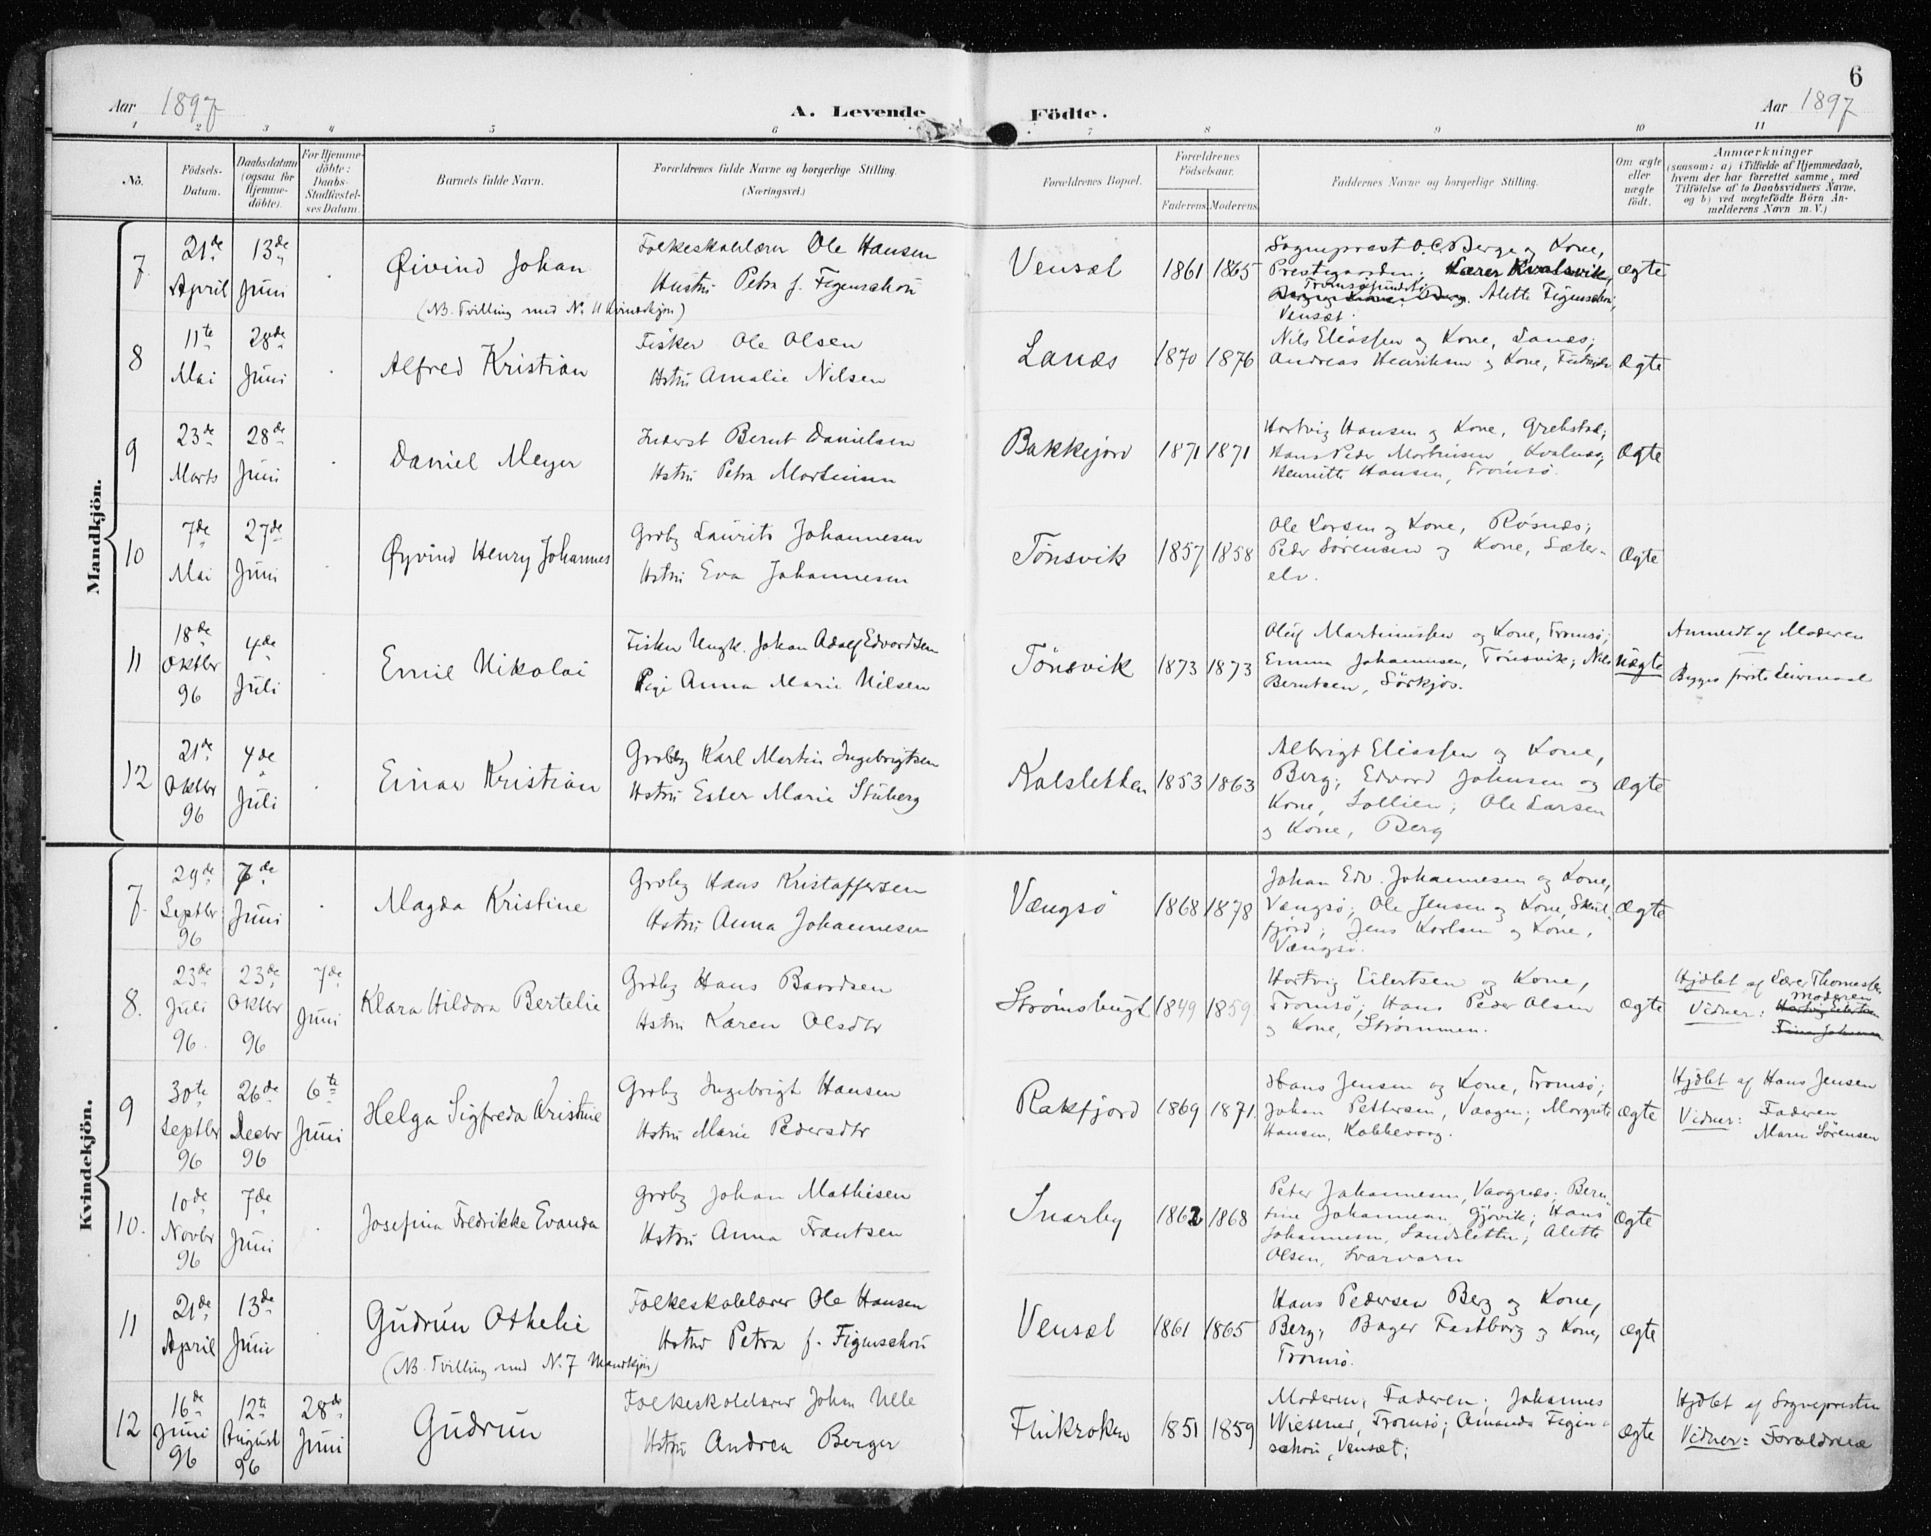 6
Aar 1897
A. Levende Födte.
Aar 1897
1 2 3 4 5 6 7 8 9 10 11
No.
Födsels-
Datum.
Daabsdatum
(ogsaa for
Hjemme-
döbte).
For Hjemme-
döbte:
Daabs-
Stadfæstel-
ses Datum.
Barnets fulde Navn.
Forældrenes fulde Navne og borgerlige Stilling.
(Næringsvei.)
Forældrenes Bopæl.
Forældrenes
Födselsaar.
Faderens. Moderens.
Faddernes Navne og borgerlige Stilling.
Om ægte
eller
uægte
födt.
Anmærkninger
(saasom: a) i Tilfælde af Hjemmedaab,
hvem der har forrettet samme, med
Tilföielse af to Daabsvidners Navne,
og b) ved uægtefödte Börn An-
melderens Navn m. V.)
Mandkjön.
7.
21de
April
13de
Juni
Øivind Johan
(NB. Tvilling med No 11 Kvindekjön)
Folkeskolelærer Ole Hansen
Hustru Petra f. Figenschou
Vensæt
1861 1865
Sogneprest O.C. Berg og Kone,
Prestegaarden; Lærer Kvalsvik,
Tromsøsundet;
Alette Figenschou,
Vensæt.
Ægte
8
11te
Mai
28de
Juni
Alfred Kristian
Fisker Ole Olsen
Hstru Amalie Nilsen
Lanæs
1870 1876
Nils Eliassen og Kone, Lanæs;
Andreas Henriksen og Kone,
Ægte
9
23de
Marts
28de
Juni
Daniel Meyer
Inderst Bernt Danielsen
Hstru Petra Martinsen
Bakkejord
1871 1871
Hartvig Hansen og Kone, Grebstad;
Hans Peder Martinsen, Kvalnæs;
Henriette Hansen, Tromsø.
Ægte
10
7de
Mai
27de
Juni
Øyvind Henry Johannes
Grdbg Laurits Johannesen
Hstru Eva Johannesen
Tønsvik
1857 1858
Ole Larsen og Kone, Røsnæs;
Peder Sørensen og Kone, Sæter-
elv.
Ægte
11
18de
Oktbr
96
4de
Juli
Emil Nikolai
Fisker Ungk. Johan Adolf Edvardsen
Pige Anna Marie Nilsen
Tønsvik
1873 1873
Oluf Martinussen og Kone, Tromsø;
Emma Johannesen, Tønsvik; Nils
Berntsen, Sörkjos.
Uægte
Anmeldt af Moderen
Begges første Leiermaal
12
21de
Oktbr
96
4de
Juli
Einar Kristian
Grdbg Karl Martin Ingebrigtsen
Hstru Ester Marie Stuberg
Kalsletten
1853 1863
Albrigt Eliassen og Kone,
Berg; Edvard Johnsen og
Kone, Sollien; Ole Larsen
og Kone, Berg
Ægte
Kvindekjön.
7.
29de
Septbr
96
7de
Juni
Magda Kristine
Grdbg Hans Kristoffersen
Hstru Anna Johannesen
Vængsø
1868 1878
Johan Edv. Johannesen og Kone,
Vængsø; Ole Jensen og Kone, Skul-
fjord; Jens Karlsen og Kone,
Vængsø.
Ægte
8.
23de
Juli
96.
23de
Oktbr
96
7de
Juni
Klara Hildora Bertelie
Grdbg Hans Baardsen
Hstru Karen Olsdtr
Strømsbugt
1849 1859
Hartvig Eilertsen og Kone,
Tromsø; Hans Peder Olsen
og Kone, Strømmen.
Ægte
Hjdbt af Lærer Thomassen
Vidner: Moderen
Hartvig Eilertsen
9
30te
Septbr
96
26de
Decbr
96
6te
Juni
Helga Sigfreda Kristine
Grdbg Ingebrigt Hansen
Hstru Marie Pedersdtr
Rakfjord
1869 1871.
Hans Jensen og Kone, Tromsø;
Johan Pettersen, Vaagen; Margrete
Hansen, Kobbevaag.
Ægte
Hjdbt af Hans Jensen
Vidner: Faderen
Maren Sørensen
10.
10de
Novbr
96
7de
Juni
Josefina Fredrikke Evanda
Grdbg Johan Mathisen
Hstru Anna Frantsen
Snarby
1862 1868
Peter Johannesen, Vaagnæs; Bern-
tine Johannesen, Gjøvik; Hans
Johannesen, Landsletten; Alette
Olsen, Svarvaren
Ægte
11
21de
April
13de
Juni
Gudrun Othelie
(NB. Tvilling med No. 7 Mandkjön)
Folkeskolelærer Ole Hansen
Hstru Petra f. Figenschou
Vensæt
1861 1865
Hans Pedersen Berg og Kone,
Berg; Bager Fastborg og Kone,
Tromsø.
Ægte
12
16de
Juni
96
12te
August
96
28de
Juni
Gudrun
Folkeskolelærer Johan Ulle
Hstru Andrea Berger
Finkroken
1851 1859
Moderen; Faderen; Johannes
Wiesener, Tromsø; Amanda Figen-
schou, Vensæt;
Ægte
Hjdbt af Sognepresten
Vidner: Forældrene